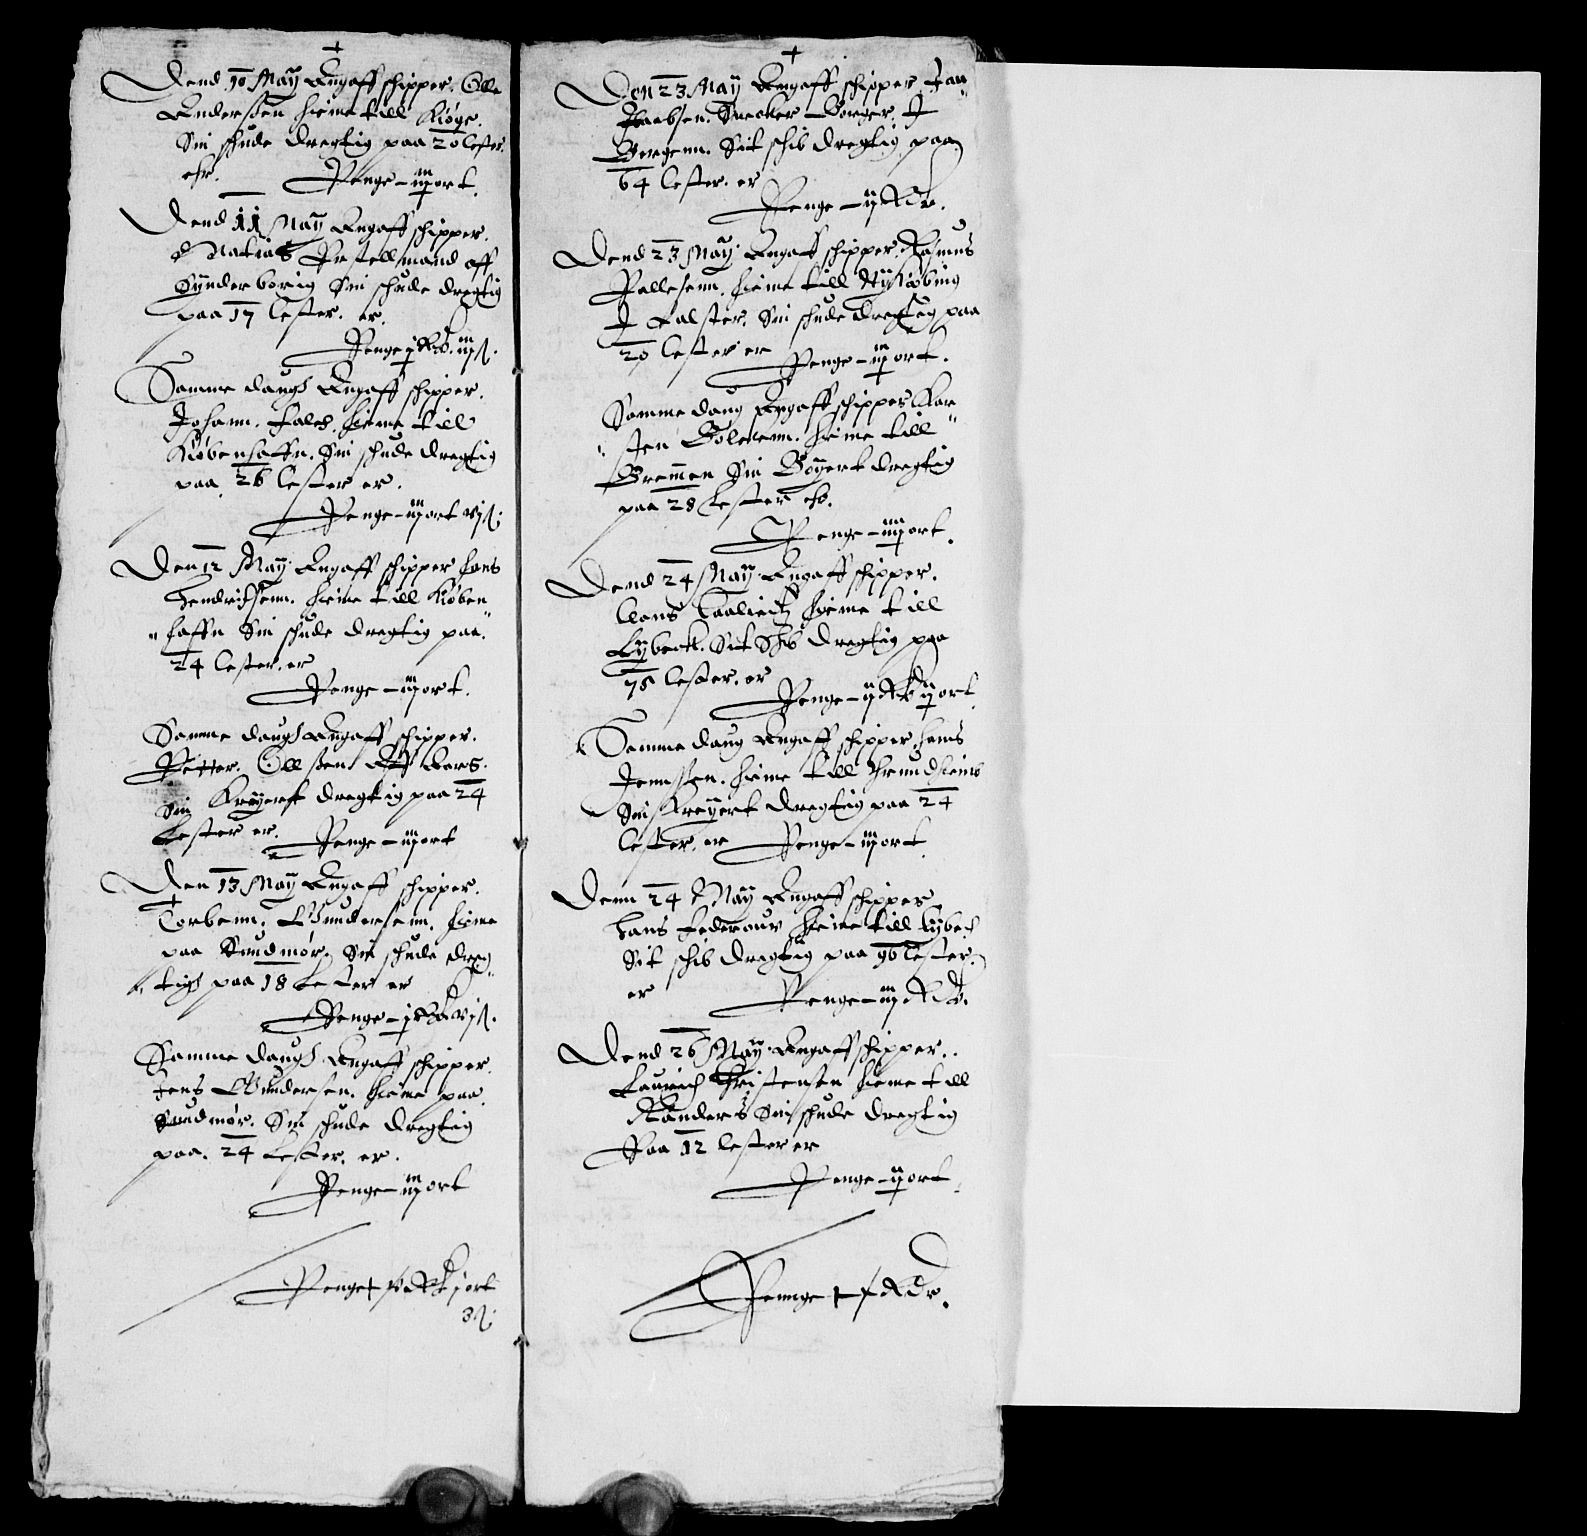 Dend 10 May Angaff schipper. Olle
Anderssen hieme till Kiøge.
Sin schude dregtig paa 20 lester.
ehr. Penge - iij ort.
Dend 11 May Angaff schipper.
Matias Postellmand aff
Synderborig Sin schude dregtig
paa 17 lester. er.
Penge j Rd. iij ß.
Samme daugh Angaff schipper.
Johann. Falch. hieme till
Kiøbenhaffn. Sin schude dregtig
paa 26 lester er.
Penge - iij ort vj ß
Den 12 May Angaff schipper hans
hendrichsenn. hieme till Kiøben
haffn Sin schude dregtig paa
24 lester. er
Penge - iij ort.
Samme daugh Angaff schipper.
Petter. Ollssen Aff
Sin Kreyert dregtig paa 24
Lester er. Penge - iij ort
Den 13 May Angaff schipper.
Torbenn. Gundersenn. hieme
paa Sundmør. Sin schude dreg
tigh paa 18 Lester er
Penge - j vj ß.
Samme daugh Angaff schipper.
Jens Gundersen. hieme paa
Sundmør. Sin schude dregtig
paa. 24 Lester. er.
Penge - iij ort
Penge j ort
3 ß
Den 23 May Angaff schipper Jan
Jbaebsen. Borger. J
Bergenn. Sit schib dregtig paa
64 lester. er
Penge - ij Rdr.
Dend 23 May. Angaff schipper Rasmus
Pallesenn. hieme till Nykiøbing
J Falster. Sin schude dregtig paa
20 lester er Penge - iij ort.
Samme daug Angaff schipper Kar
sten hieme till
Bremmen Sin Boyert dregtig
paa 28 Lester ehr.
Penge - iiij ort.
Dend 24 May. Angaff schipper.
Clans hieme till
Lybeck. Sit Schib dregtig paa
75 lester. er
Penge - ij Rd ij ort
Samme daug Angaff schipper hans
Jennssen. hieme till Thrundheim
Sin Kreyert dregtig paa 24
lester. er Penge - iij ort
Denn 24 May Angaff schipper
hans Federouv hieme till Lybech
Sit schib dregtig paa 90 lester.
er Penge - iij Rdr.
Dend 26 May. Angaff schipper.
Laurids Christensen hieme till
Randers Sin schude dregtig
Paa 12 lester er
Penge - ij ort
Pennge Rdr.